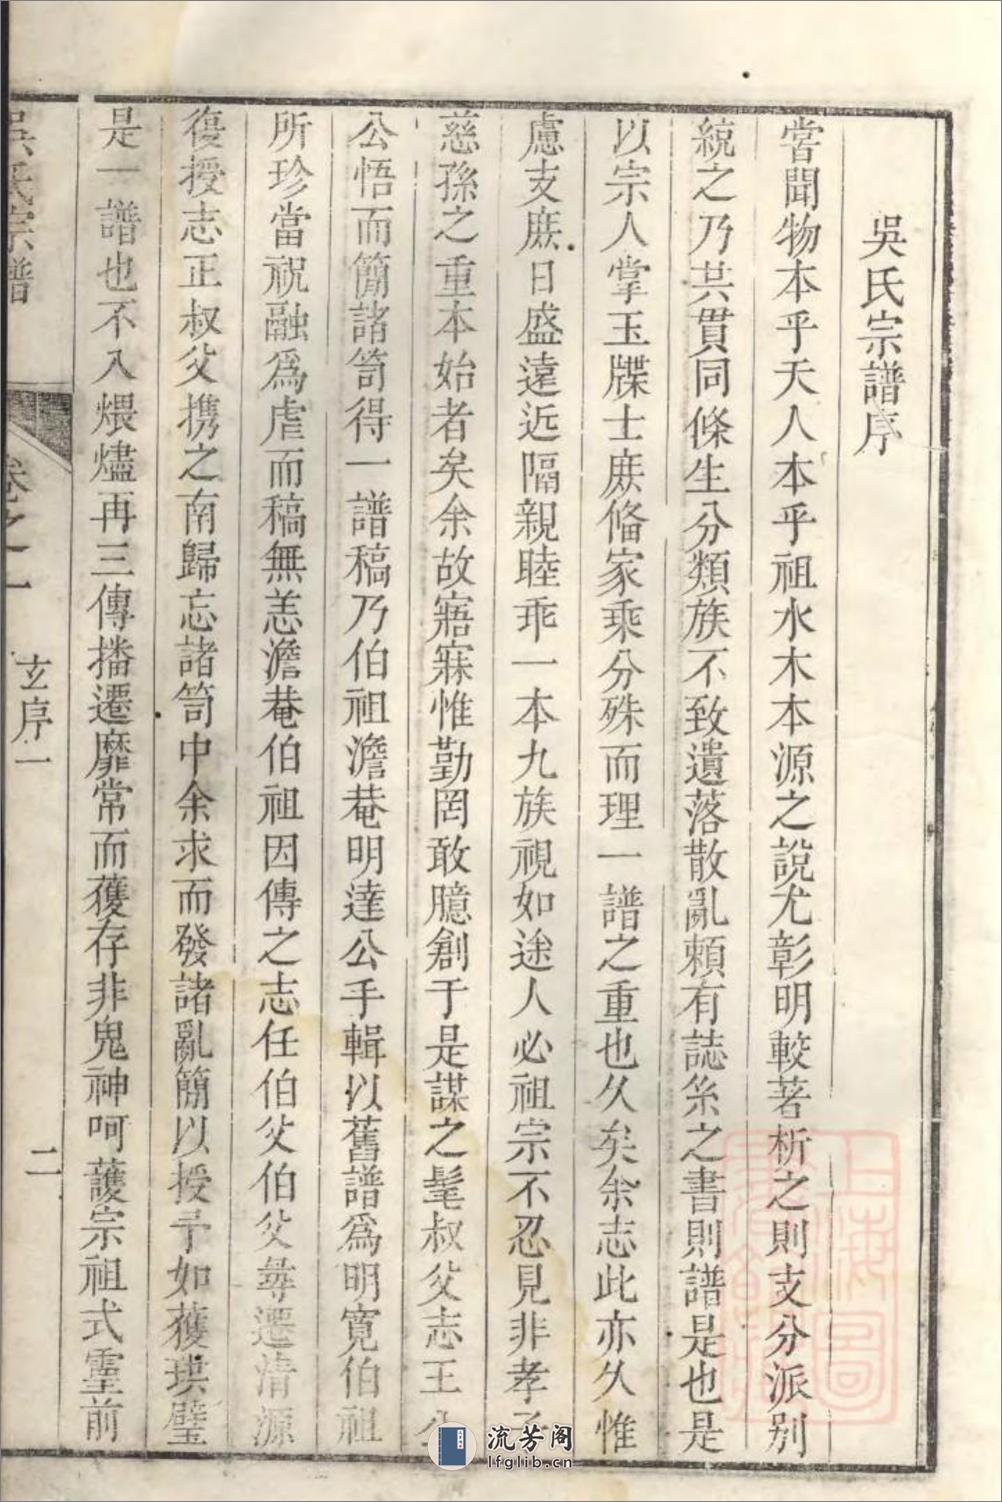 吳氏宗譜序
嘗聞物本乎天人本乎祖水木本源之說尤彰明較著析之則支分派别
統之乃共貫同條生分類族不致遺落散亂頼有誌糸之書則譜是也是
以宗人掌玉牒士庶俻家乘分殊而理一譜之重也久矣余志此亦久惟
慮支庶日盛遠近隔親睦乖一本九族視如途人必祖宗不忍見非孝子
慈孫之重本始者矣余故寤寐惟勤罔敢臆創于是謀之髦叔父志王公
公悟而簡諸笥得一譜稿乃伯祖澹菴明達公手輯以舊譜爲明寛伯祖
所珍當祝融爲虐而稿無恙澹菴伯祖因傳之志任伯父伯父尋遷清源
復授志正叔父携之南歸忘諸笥中余求而發諸亂簡以授予如獲珙璧
是一譜也不入煨燼再三傳播遷靡常而獲存非鬼神呵護宗祖式靈前
吳氏宗譜
卷之一
玄序一
二
上海圖
流芳阁
lfglib.cn